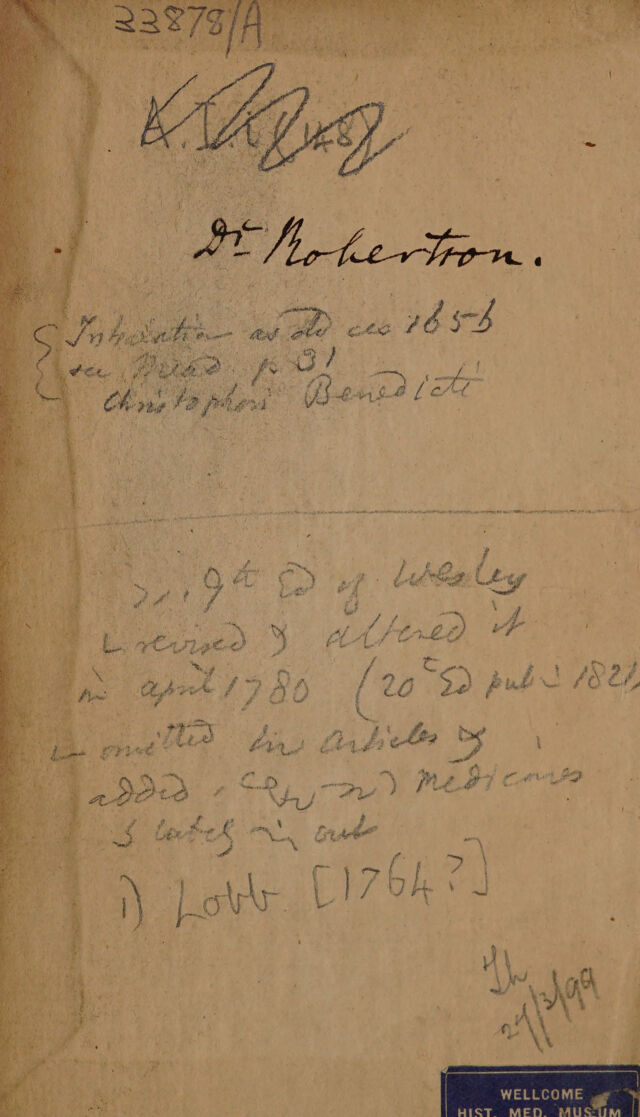 33878/A
Dr Robertson.
Inhalation as old as 1656
see Mead p 31
Christophori Benedicti
9th Ed of Wesley
revised & altered it
in april 1780 (20 Ed pub 1821
omitted articles &
added medicines
out
1) Lobb [1764?]
27/3/99
WELLCOME
HIST. MED. MUSEUM